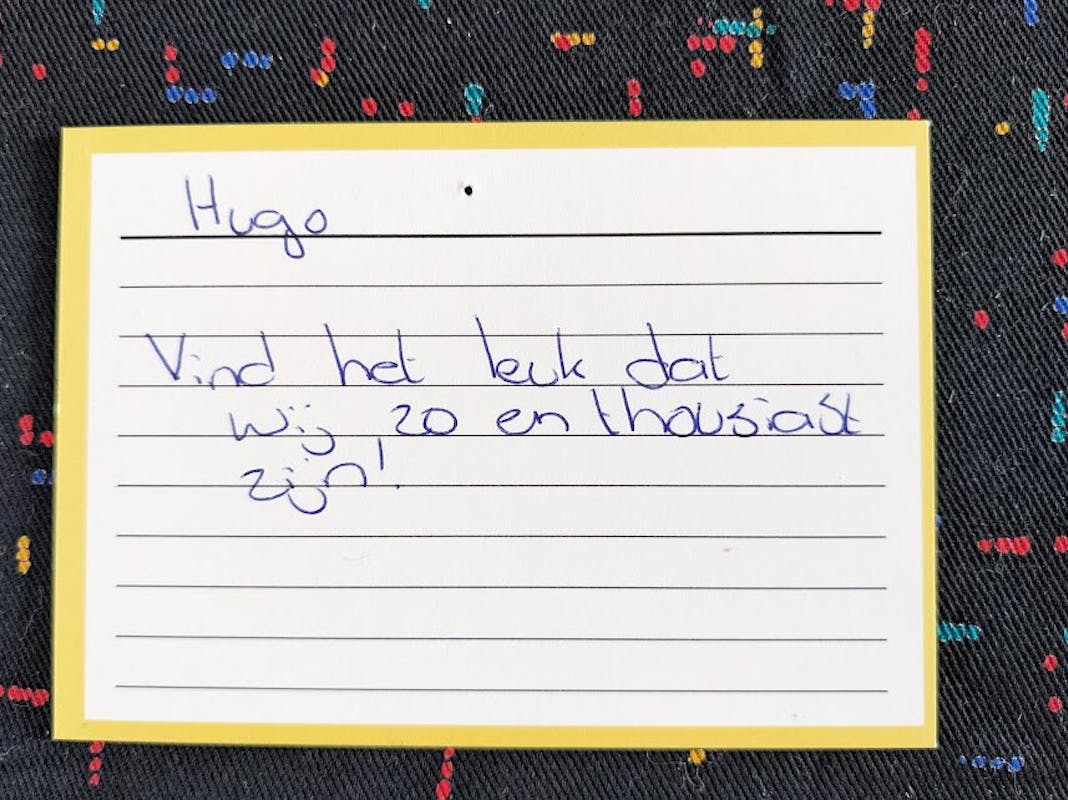 Hugo
Vind het leuk dat
wij zo enthousiast
zijn!